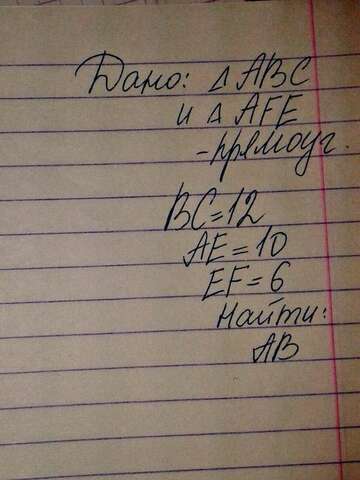 Дано: △ ABC
и △ AFE
- прямоуг.
BC=12
AE=10
EF=6
Найти:
AB